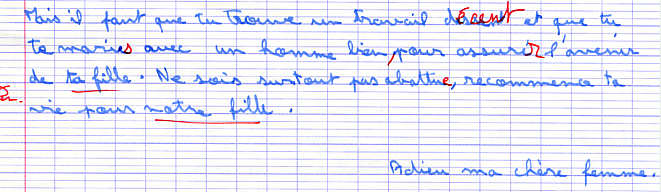 Mais il faut que tu trouve un travail décent et que tu
te maries avec un homme bien, pour assurer l'avenir
de ta fille. Ne sois surtout pas abattue, recommence ta
vie pour notre fille.
Adieu ma chère femme.